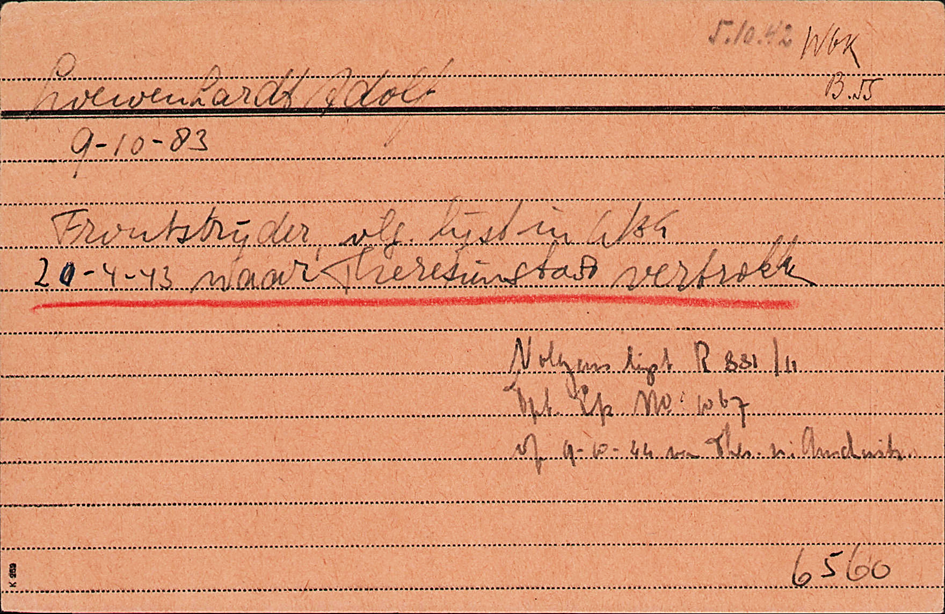 5.10.42 Wbk
B.55
Loewenhardt Adolf
9-10-83
Frontstrijder, vlg. lijst in Wbk
20-4-43 naar Theresiënstadt vertrokk
Volgens lijst R 881/11
Tpt. No: 1067
op 9-10-44 van Ther. n. Auschwitz.
6560
K 259